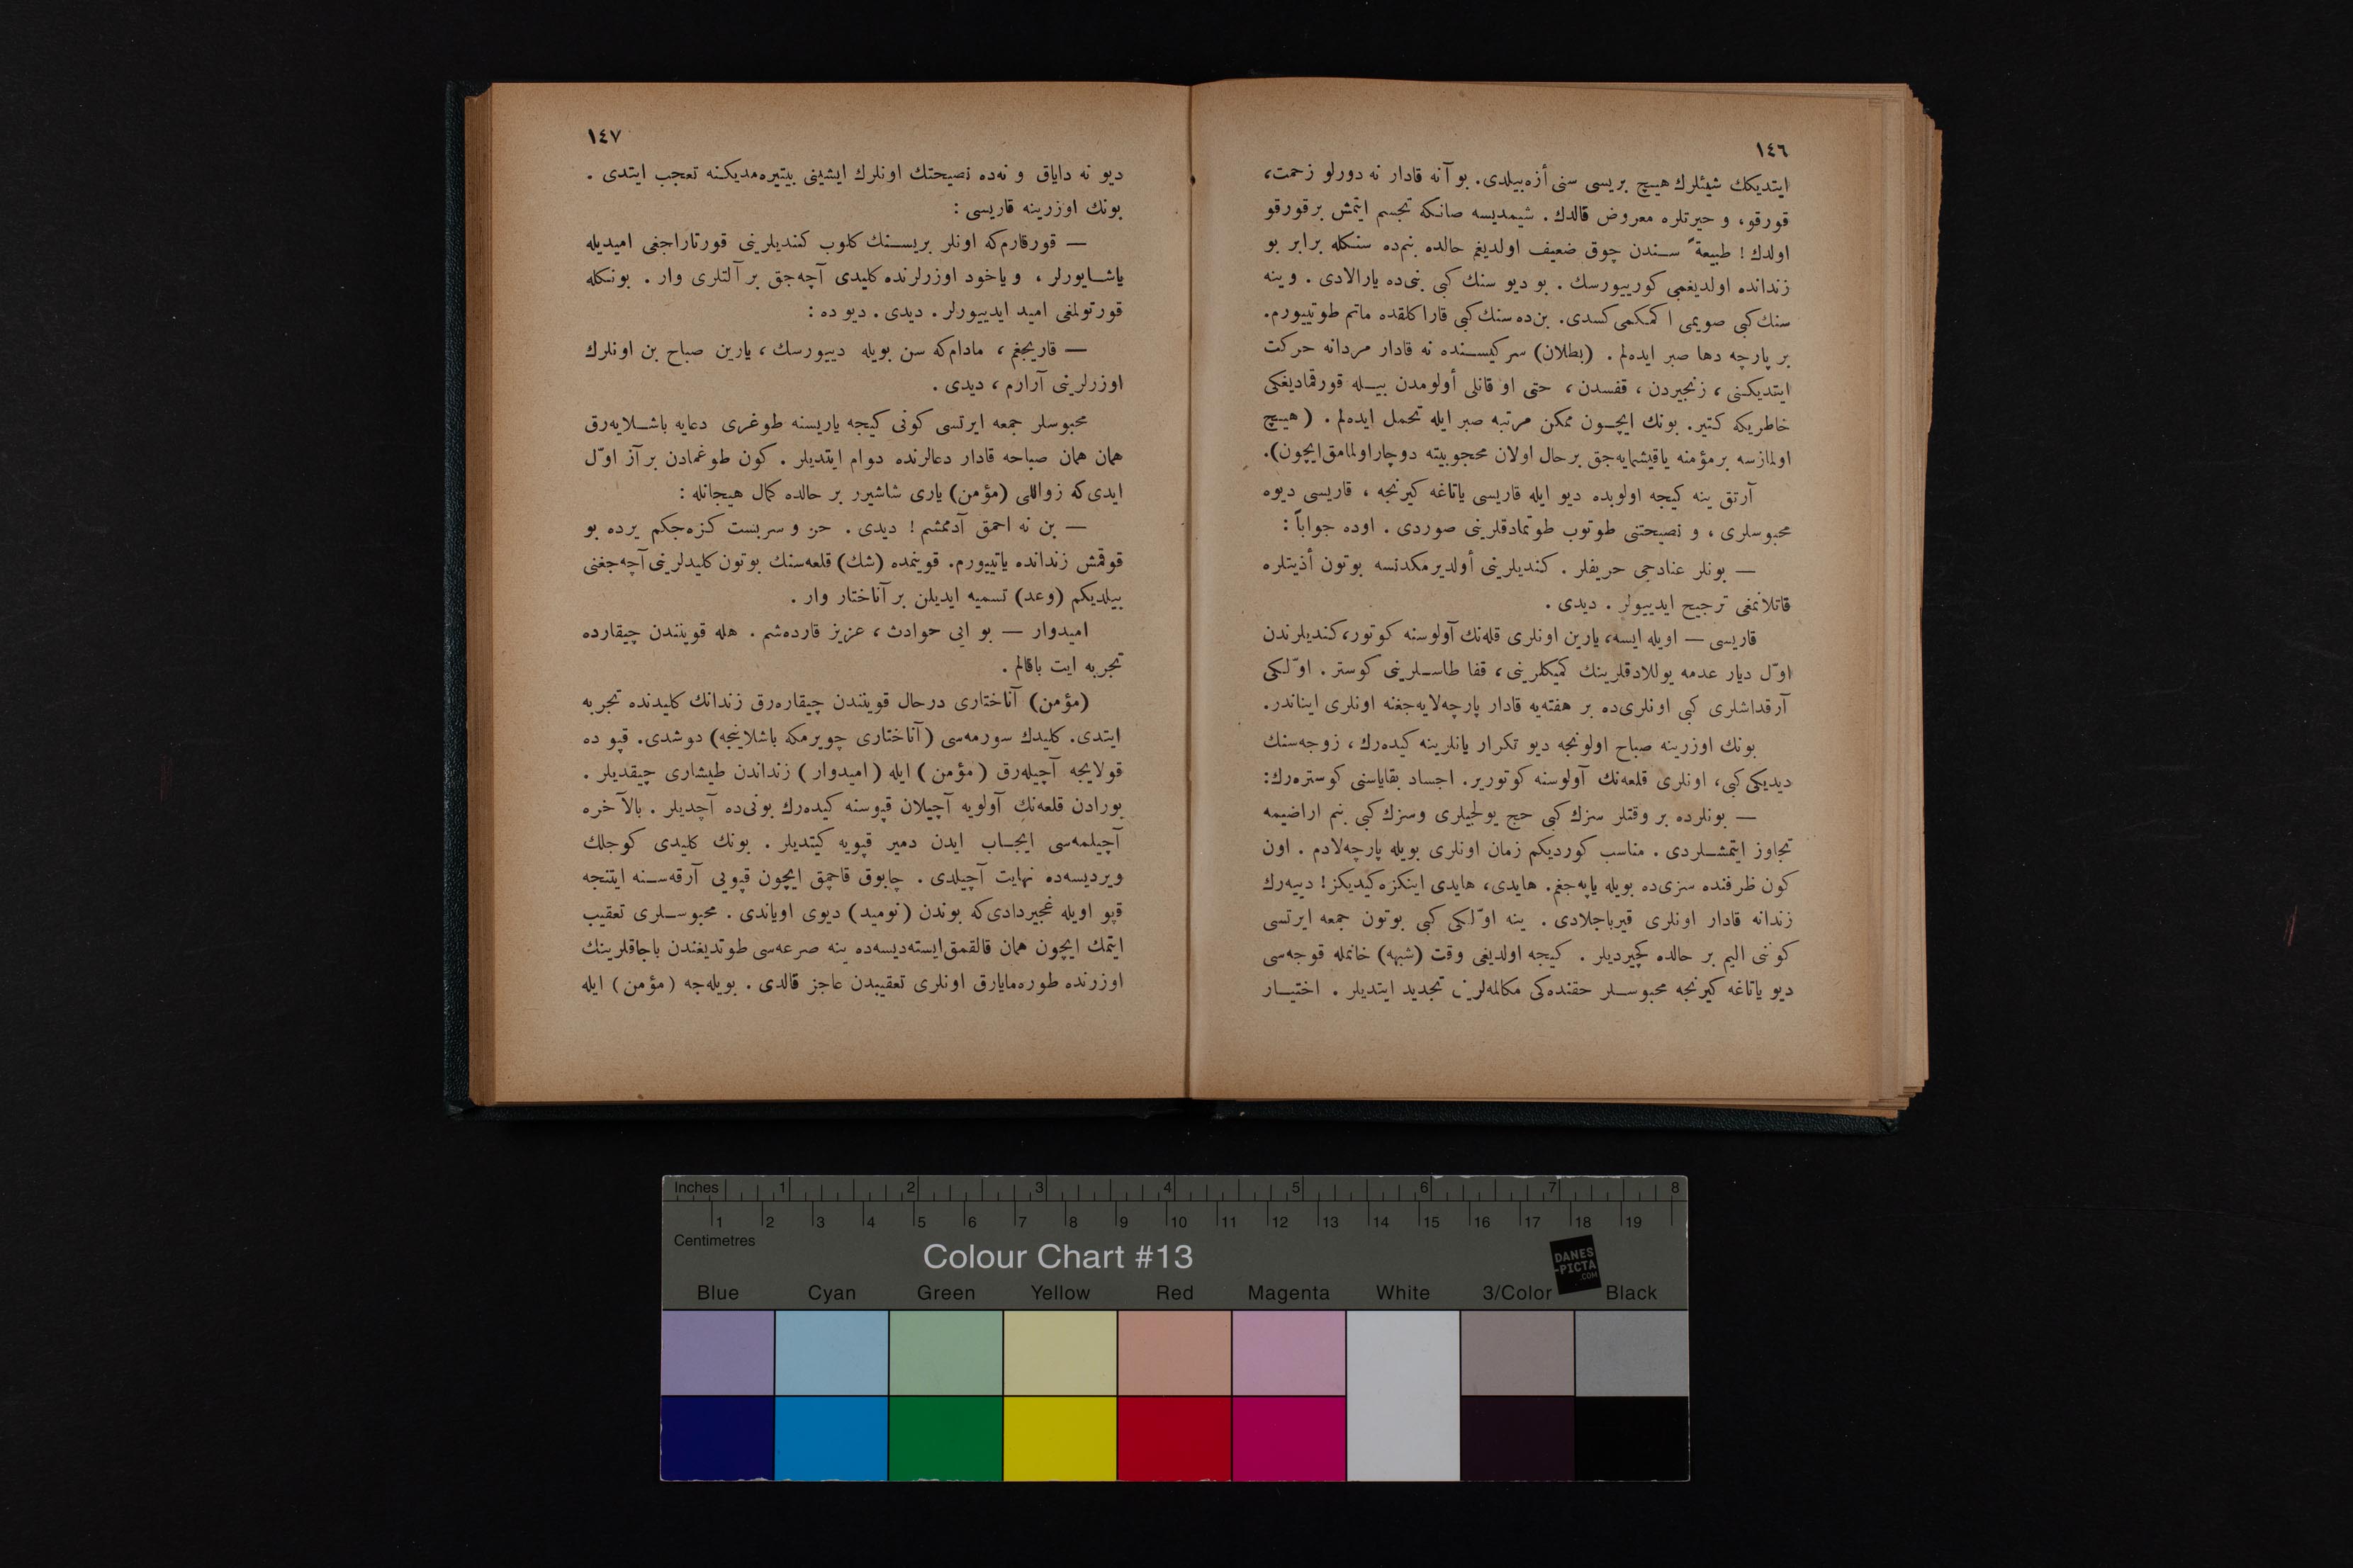 ١٤٦
ایتدیكك شیئلرك هیچ بریسی سنی أزه‌بیلدی. بو آنه قادار نه دورلو زحمت،
قورقو، و حیرتلره معروض قالدك. شیمدیسه صانكه تجسم ایتمش بر قورقو
اولدك! طبیعةً سندن چوق ضعیف اولدیغم حالده بنم‌ده سنكله برابر بو
زندانده اولدیغمی كوریيورسك. بو دیو سنك كبی بنی‌ده یارالادی. وینه
سنك كبی صویمی اكمكمی كسدی. بن‌ده سنك كبی قاراكلقده ماتم طوتییورم.
بر پارچه دها صبر ایده‌لم. (بطلان) سركیسنده نه قادار مردانه حركت
ایتدیكنی، زنجیردن، قفسدن، حتی او قانلی أولومدن بیله قورقمادیغكی
خاطریكه كتیر. بونك ایچون ممكن مرتبه صبر ایله تحمل ایده‌لم. (هیچ
اولمازسه بر مؤمنه یاقیشمایه‌جق بر حال اولان محجوبیته دوچار اولمامق ایچون).
آرتق ینه كیجه اولوبده دیو ایله قاریسی یاتاغه كیرنجه، قاریسی دیوه
محبوسلری، و نصیحتنی طوتوب طوتمادقلرینی صوردی. اوده جواباً:
— بونلر عنادجی حریفلر. كندیلرینی أولدیرمكدنسه بوتون أذیتلره
قاتلانمغی ترجیح ایدییولر. دیدی.
قاریسی — اویله ایسه، یارین اونلری قلعه‌نك آولوسنه كوتور، كندیلرندن
اوّل دیار عدمه یوللادقلرینك كمیكلرینی، قفا طاسلرینی كوستر. اوّلكی
آرقداشلری كبی اونلری‌ده بر هفته‌یه قادار پارچه‌لایه‌جغنه اونلری ایناندر.
بونك اوزرینه صباح اولونجه دیو تكرار یانلرینه كیده‌رك، زوجه‌سنك
دیدیكی كبی، اونلری قلعه‌نك آولوسنه كوتوریر. اجساد بقایاسنی كوستره‌رك:
— بونلرده بر وقتلر سزك كبی حج یولجیلری وسزك كبی بنم اراضیمه
تجاوز ایتمشلردی. مناسب كوردیكم زمان اونلری بویله پارچه‌لادم. اون
كون ظرفنده سزی‌ده بویله یاپه‌جغم. هایدی، هایدی اینكزه كیدیكز! دییه‌رك
زندانه قادار اونلری قیرباجلادی. ینه اوّلكی كبی بوتون جمعه ایرتسی
كوننی الیم بر حالده كچیردیلر. كیجه اولدیغی وقت (شبهه) خانمله قوجه‌سی
دیو یاتاغه كیرنجه محبوسلر حقنده‌كی مكالمه‌لرین تجدید ایتدیلر. اختیار
١٤٧
دیو نه دایاق و نه‌ده نصیحتك اونلرك ایشینی بیتیره‌مدیكنه تعجب ایتدی.
بونك اوزرینه قاریسی:
— قورقارم‌كه اونلر بریسنك كلوب كندیلرینی قورتاراجغی امیدیله
یاشایورلر، ویاخود اوزرلرنده كلیدی آچه‌جق بر آلتلری وار. بونكله
قورتولمغی امید ایدییورلر. دیدی. دیو ده:
— قاریجغم، مادام‌كه سن بویله دییورسك، یارین صباح بن اونلرك
اوزرلرینی آرارم، دیدی.
محبوسلر جمعه ایرتسی كونی كیجه یاریسنه طوغری دعایه باشلایه‌رق
همان همان صباحه قادار دعالرنده دوام ایتدیلر. كون طوغمادن بر آز اوّل
ایدی‌كه زواللی (مؤمن) یاری شاشیرر بر حالده كمال هیجانله:
— بن نه احمق آدممشم! دیدی. حر و سربست كزه‌جكم یرده بو
قوقمش زندانده یاتییورم. قوینمده (شك) قلعه‌سنك بوتون كلیدلرینی آچه‌جغنی
بیلدیكم (وعد) تسمیه ایدیلن بر آناختار وار.
امیدوار — بو ایی حوادث، عزیز قارده‌شم. هله قوینندن چیقارده
تجربه ایت باقالم.
(مؤمن) آناختاری درحال قوینندن چیقاره‌رق زندانك كلیدنده تجربه
ایتدی. كلیدك سورمه‌سی (آناختاری چویرمكه باشلاینجه) دوشدی. قپو ده
قولایجه آچیله‌رق (مؤمن) ایله (امیدوار) زنداندن طیشاری چیقدیلر.
بورادن قلعه‌نك آولویه آچیلان قپوسنه كیده‌رك بونی‌ده آچدیلر. بالآخره
آچیلمه‌سی ایجاب ایدن دمیر قپویه كیتدیلر. بونك كلیدی كوجلك
ویردیسه‌ده نهایت آچیلدی. چابوق قاچمق ایچون قپویی آرقه‌سنه ایتنجه
قپو اویله غجیردادی‌كه بوندن (نومید) دیوی اویاندی. محبوسلری تعقیب
ایتمك ایچون همان قالقمق ایسته‌دیسه‌ده ینه صرعه‌سی طوتدیغندن باجاقلرینك
اوزرنده طوره‌مایارق اونلری تعقیبدن عاجز قالدی. بویله‌جه (مؤمن) ایله
Inches 1 2 3 4 5 6 7 8
1 2 3 4 5 6 7 8 9 10 11 12 13 14 15 16 17 18 19
Centimetres
Colour Chart #13
DANES
-PICTA
.COM
Blue Cyan Green Yellow Red Magenta White 3/Color Black